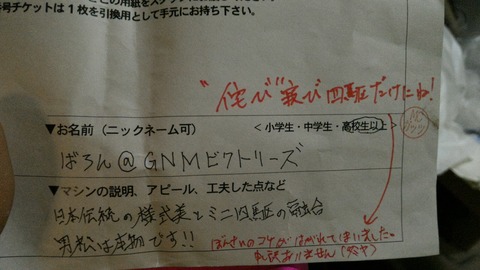 号チケットは1枚を引換用として手元にお持ち下さい。
"侘び"寂び四駆だけにね!
▼お名前(ニックネーム可)
<小学生・中学生・高校生以上>
ばろん@GNMビクトリーズ
▼マシンの説明、アピール、工夫した点など
日本伝統の様式美とミニ四駆の融合
男松は本物です!!
ぼんさいのコケがはがれてしまいました。
申訳ありません